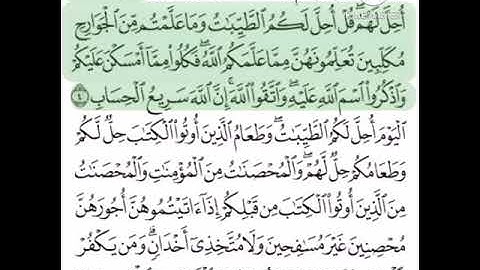 أُحِلَّ لَهُمْۖ قُلْ أُحِلَّ لَكُمُ ٱلطَّيِّبَٰتُ وَمَا عَلَّمْتُم مِّنَ ٱلْجَوَارِحِ
مُكَلِّبِينَ تُعَلِّمُونَهُنَّ مِمَّا عَلَّمَكُمُ ٱللَّهُۖ فَكُلُوا۟ مِمَّآ أَمْسَكْنَ عَلَيْكُمْ
وَٱذْكُرُوا۟ ٱسْمَ ٱللَّهِ عَلَيْهِۖ وَٱتَّقُوا۟ ٱللَّهَۚ إِنَّ ٱللَّهَ سَرِيعُ ٱلْحِسَابِ ٤
ٱلْيَوْمَ أُحِلَّ لَكُمُ ٱلطَّيِّبَٰتُۖ وَطَعَامُ ٱلَّذِينَ أُوتُوا۟ ٱلْكِتَٰبَ حِلٌّ لَّكُمْ
وَطَعَامُكُمْ حِلٌّ لَّهُمْۖ وَٱلْمُحْصَنَٰتُ مِنَ ٱلْمُؤْمِنَٰتِ وَٱلْمُحْصَنَٰتُ
مِنَ ٱلَّذِينَ أُوتُوا۟ ٱلْكِتَٰبَ مِن قَبْلِكُمْ إِذَآ ءَاتَيْتُمُوهُنَّ أُجُورَهُنَّ
مُحْصِنِينَ غَيْرَ مُسَٰفِحِينَ وَلَا مُتَّخِذِىٓ أَخْدَانٍۗ وَمَن يَكْفُرْ